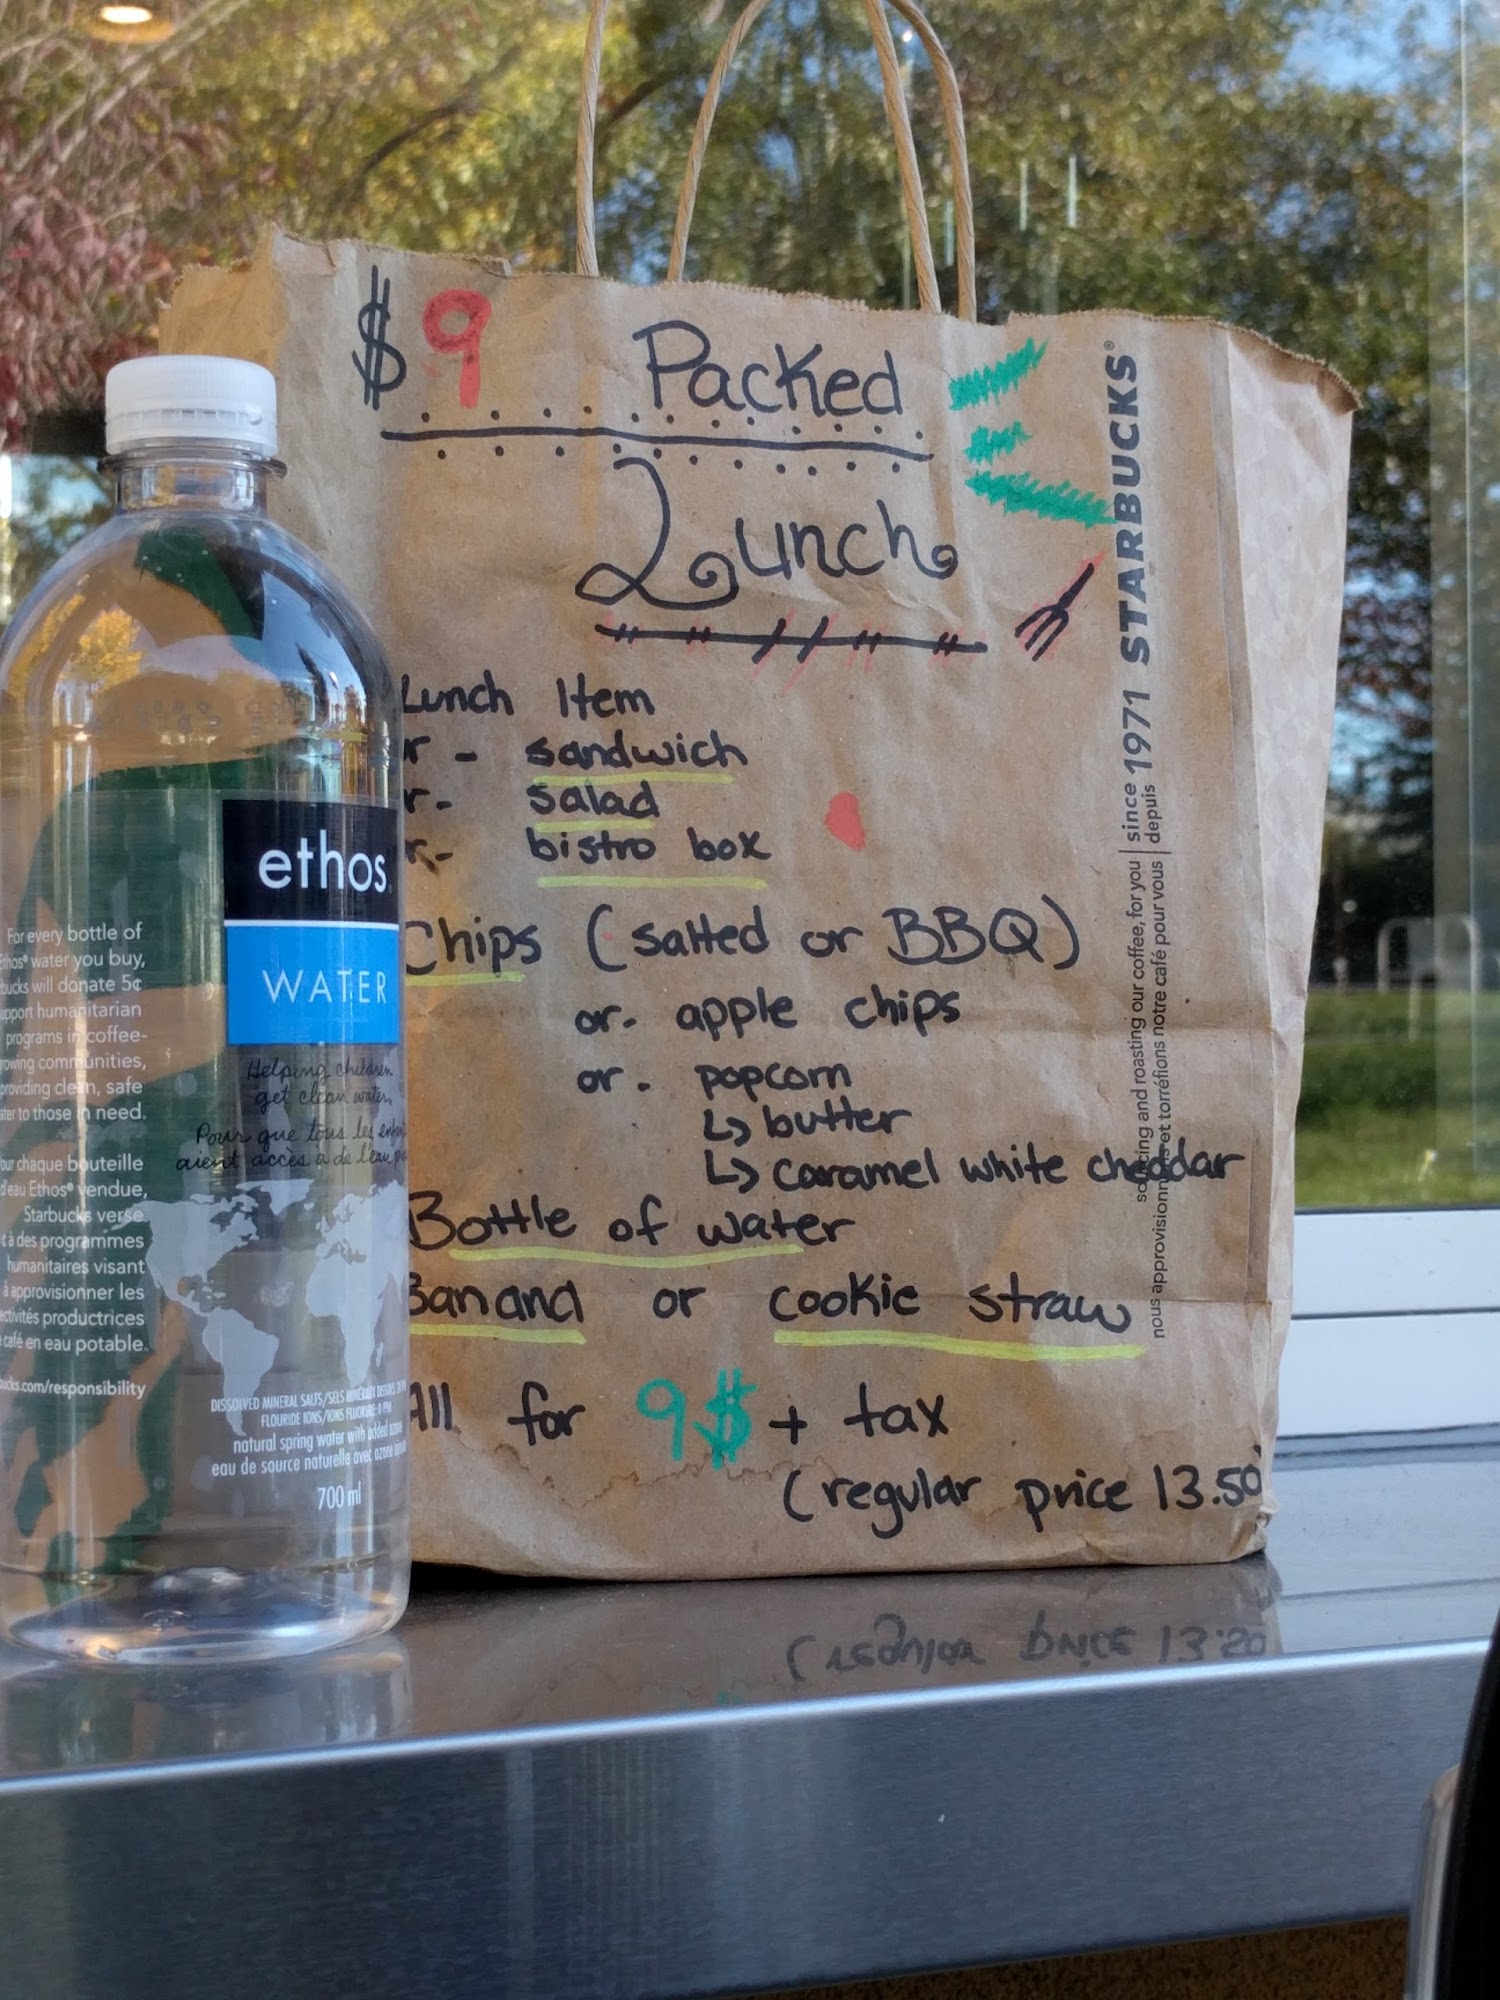 $9 Packed
Lunch
Lunch Item
r - sandwich
r - salad
r - bistro box
Chips (salted or BBQ)
or - apple chips
or - popcorn
↳ butter
↳ caramel white cheddar
Bottle of water
Banana or cookie straw
All for 9$ + tax
(regular price 13.50
STARBUCKS®
since 1971
depuis
sourcing and roasting our coffee, for you
nous approvisionnons et torréfions notre café pour vous
ethos
WATER
Helping children
get clean water.
Pour que tous les
aient accès à de l'eau
DISSOLVED MINERAL SALTS/SELS MINÉRAUX DISSOUS
FLOURIDE IONS/IONS FLUORURE: 0 PPM
natural spring water with added ozone
eau de source naturelle avec ozone
700 ml
For every bottle of
Ethos® water you buy,
bucks will donate 5¢
support humanitarian
programs in coffee-
growing communities,
providing clean, safe
water to those in need.
Pour chaque bouteille
d'eau Ethos® vendue,
Starbucks verse
¢ à des programmes
humanitaires visant
à approvisionner les
productrices
café en eau potable.
bucks.com/responsibility